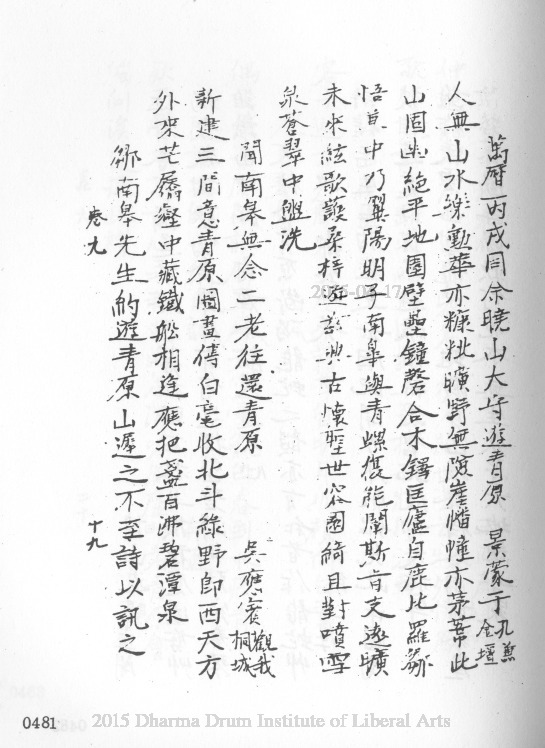 萬曆丙戌同余曉山大守遊青原　景蒙于孔兼金壇
人無山水樂勳華亦糠粃曠野無險崖惛憧亦茅蔀此
山固幽絕平地圍壁壘鐘磬合木鐸匡廬自鹿比羅豁
悟真中乃翼陽明子南皐與青螺復能闡斯旨支遼曠
未來絃歌護桑梓遊茲溯古懷聖世容園綺且對噴雪
泉蒼翠中盥洗
聞南皋無念二老往還青原　吳應賓觀我桐城
新建三間意青原圖畫傳白毫收北斗綠野即西天方
外來芒屩壑中藏鐵船相逢應把盞百沸碧潭泉
鄒南皋先生約遊青原山遲之不至詩以訊之
卷九　十九
0481
2015 Dharma Drum Institute of Liberal Arts